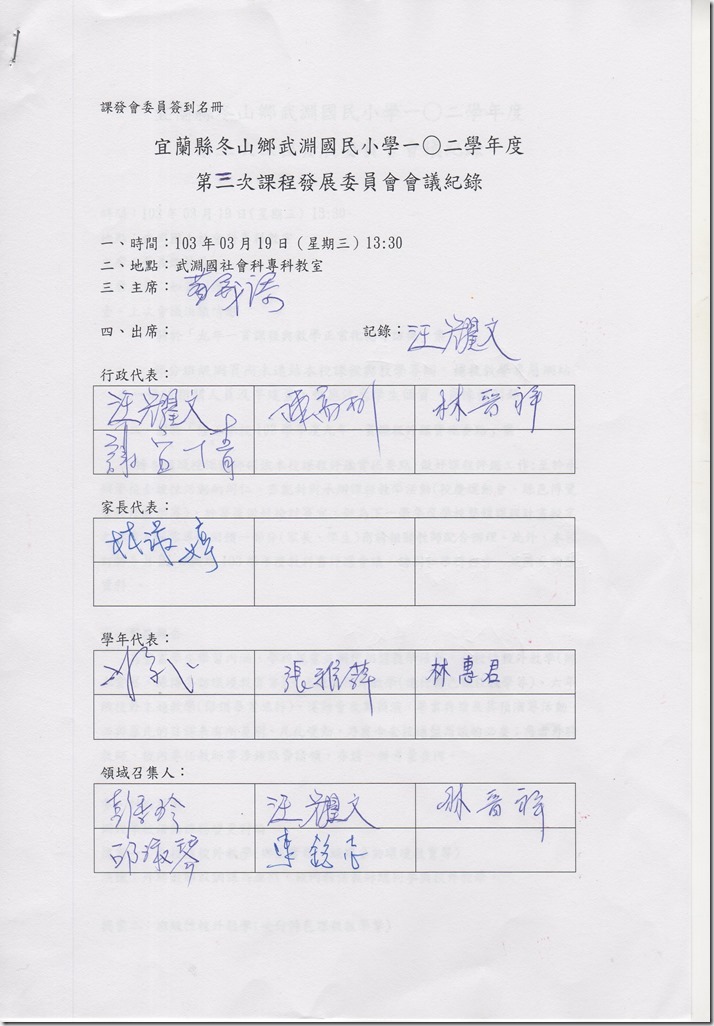 課發會委員簽到名冊
宜蘭縣冬山鄉武淵國民小學一〇二學年度
第三次課程發展委員會會議紀錄
一、時間：103年03月19日（星期三）13:30
二、地點：武淵國社會科專科教室
三、主席：
四、出席： 記錄：汪耀文
行政代表：
汪耀文 林晉祥
謝宜倩
家長代表：
學年代表：
張雅萍 林惠君
領域召集人：
彭秀玲 汪耀文 林晉祥
邱淑琴